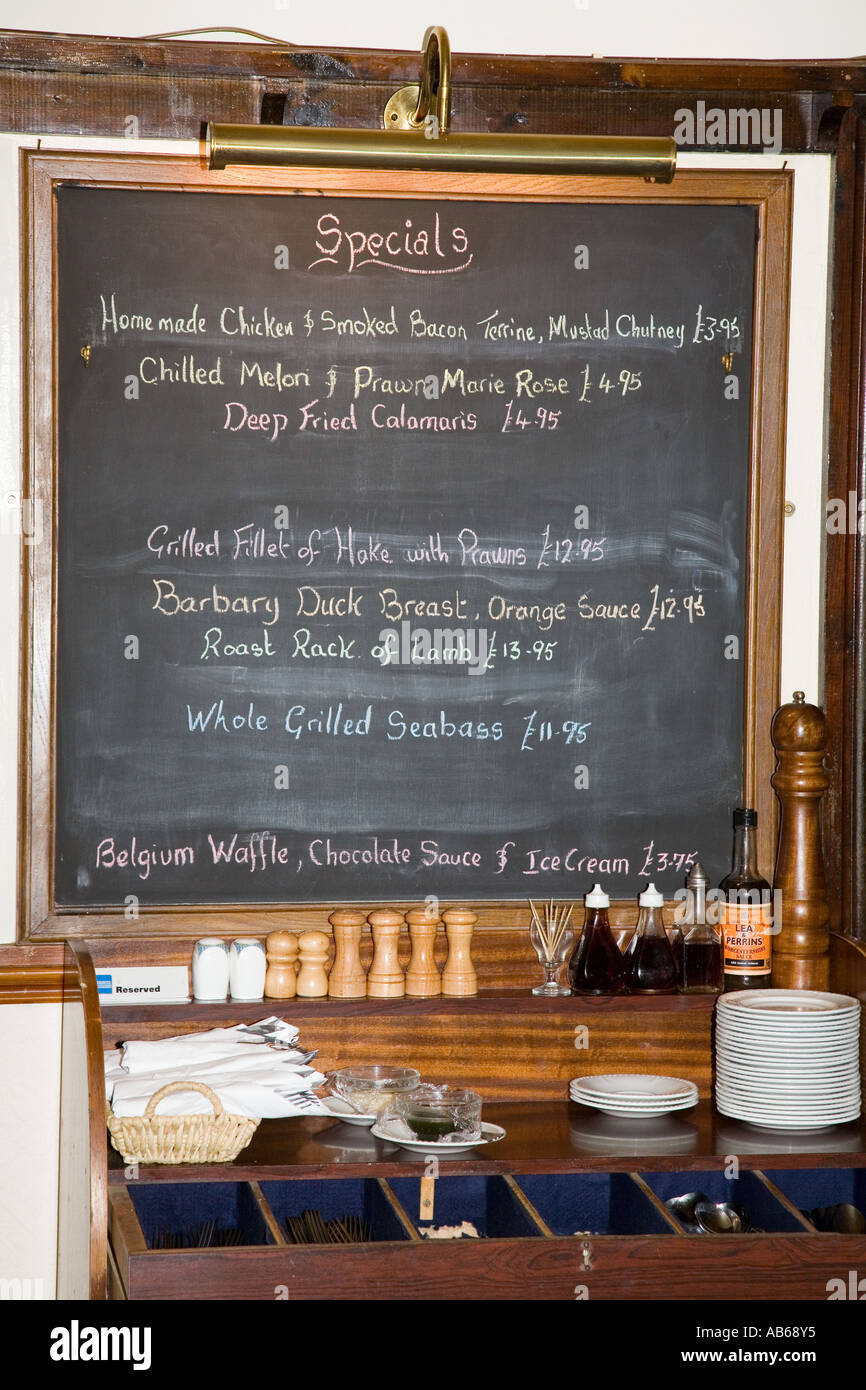 Specials
Homemade Chicken & Smoked Bacon Terrine, Mustad Chutney £3-95
Chilled Melon & Prawn Marie Rose £4-95
Deep Fried Calamaris £4-95
Grilled Fillet of Hake with Prawns £12-95
Barbary Duck Breast, Orange Sauce £12-95
Roast Rack of Lamb £13-95
Whole Grilled Seabass £11-95
Belgium Waffle, Chocolate Sauce & Ice Cream £3-75
LEA & PERRINS
Reserved
alamy
Image ID: AB68Y5
www.alamy.com